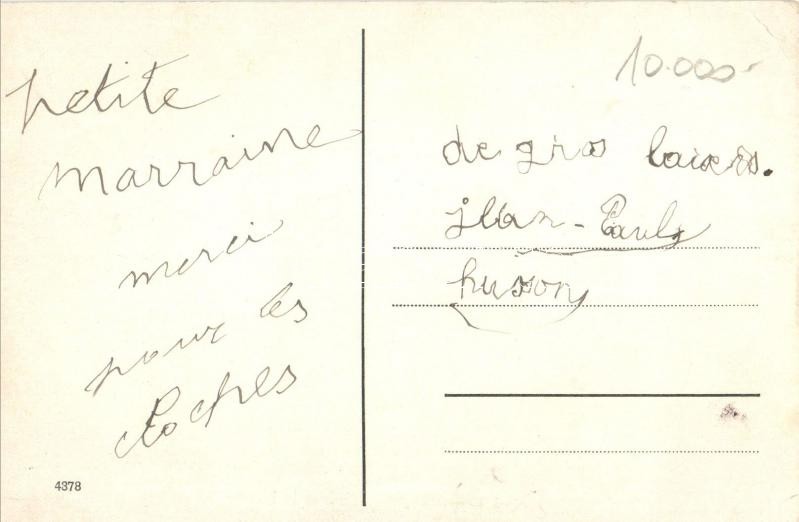 petite
marraine
merci
pour les
cloches
4378
10.000
de gros baisers.
jean-Paul
huson